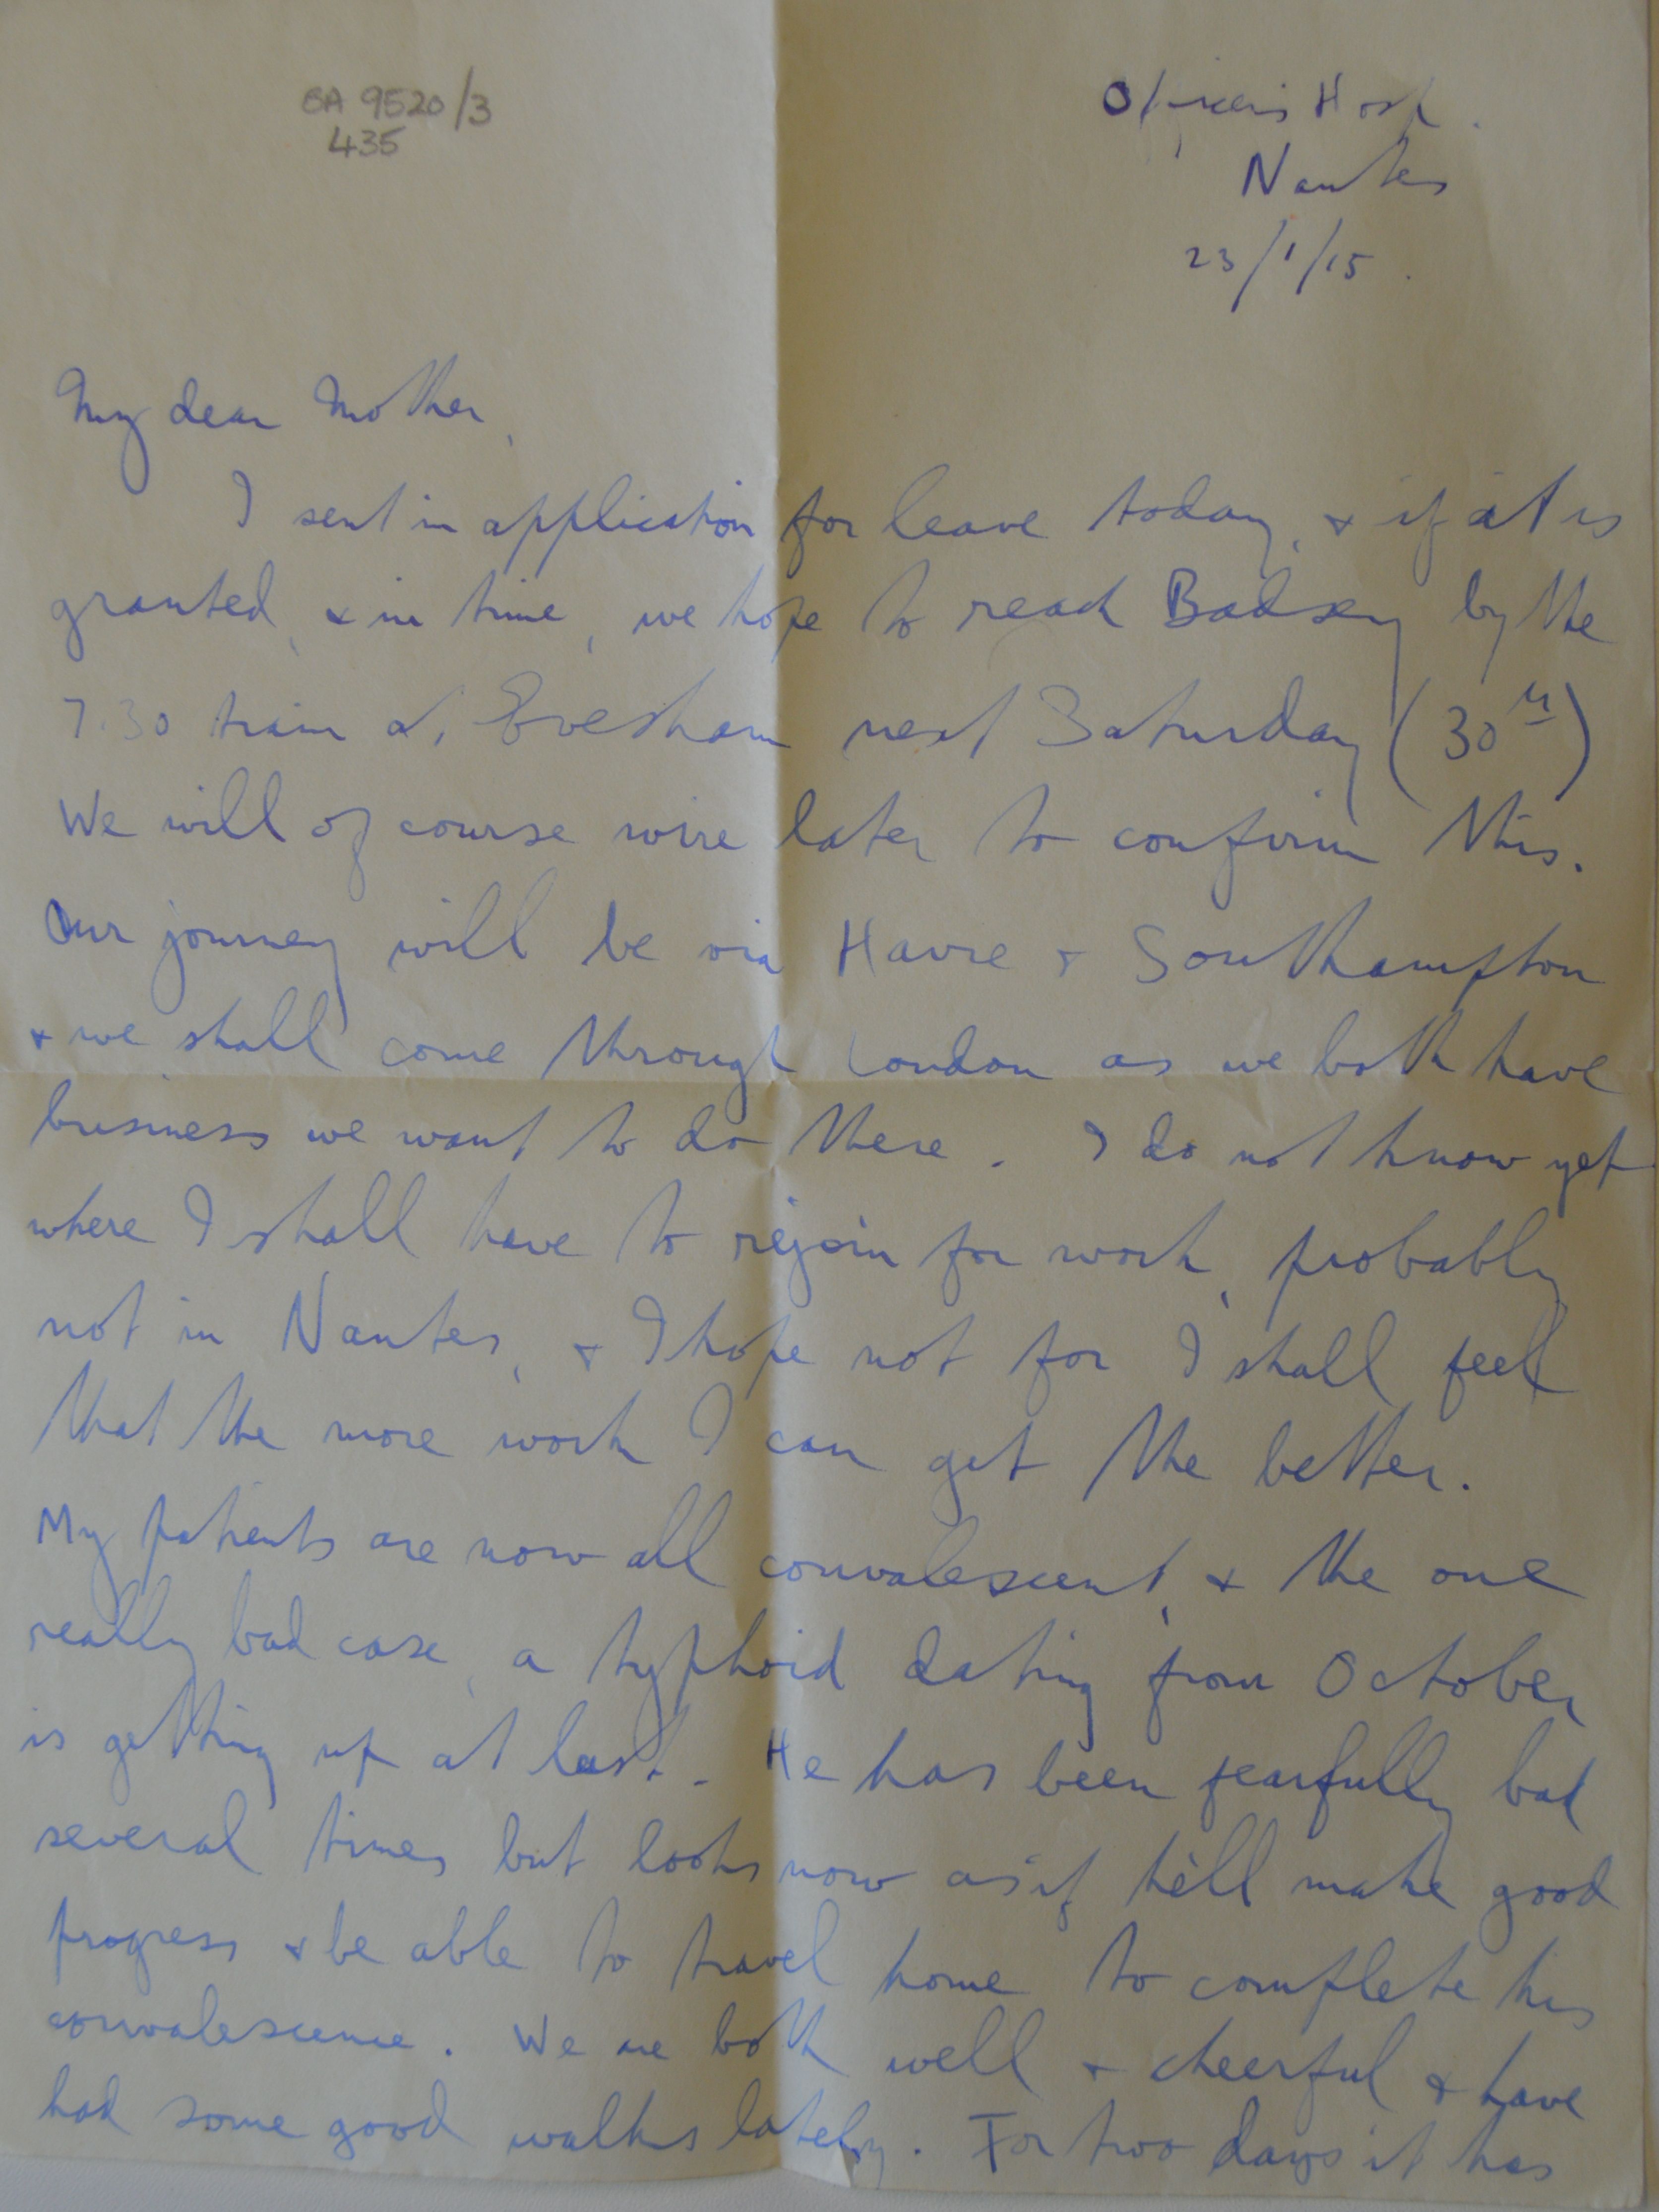 BA 9520/3
435
Officers Hosp.
Nantes
23/1/15.
My dear Mother,
I sent in application for leave today, & if it is
granted, & in time, we hope to reach Badsey by the
7.30 train at Evesham next Saturday (30th)
We will of course wire later to confirm this.
Our journey will be via Havre & Southampton
& we shall come through London as we both have
business we want to do there. I do not know yet
where I shall have to rejoin for work, probably
not in Nantes, & I hope not for I shall feel
that the more work I can get the better.
My patients are now all convalescent, & the one
really bad case, a typhoid dating from October,
is getting up at last. He has been fearfully bad
several times but looks now as if he'll make good
progress & be able to travel home to complete his
convalescence. We are both well & cheerful & have
had some good walks lately. For two days it has